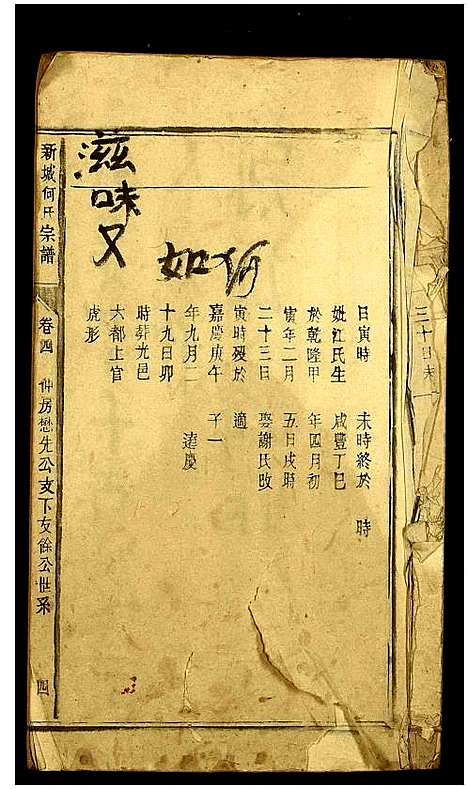 三十日未
日寅時　未時終於　時
妣江氏生　咸豐丁巳
於乾隆甲　年四月初
寅年二月　五日戌時
二十三日　娶謝氏改
寅時歿於　適
嘉慶庚午　子一
年九月二　達慶
十九日卯
時葬光邑
大都上官
虎形
如何
滋味又
新城何氏宗譜　卷四　仲房懋先公支下友餘公世系　四